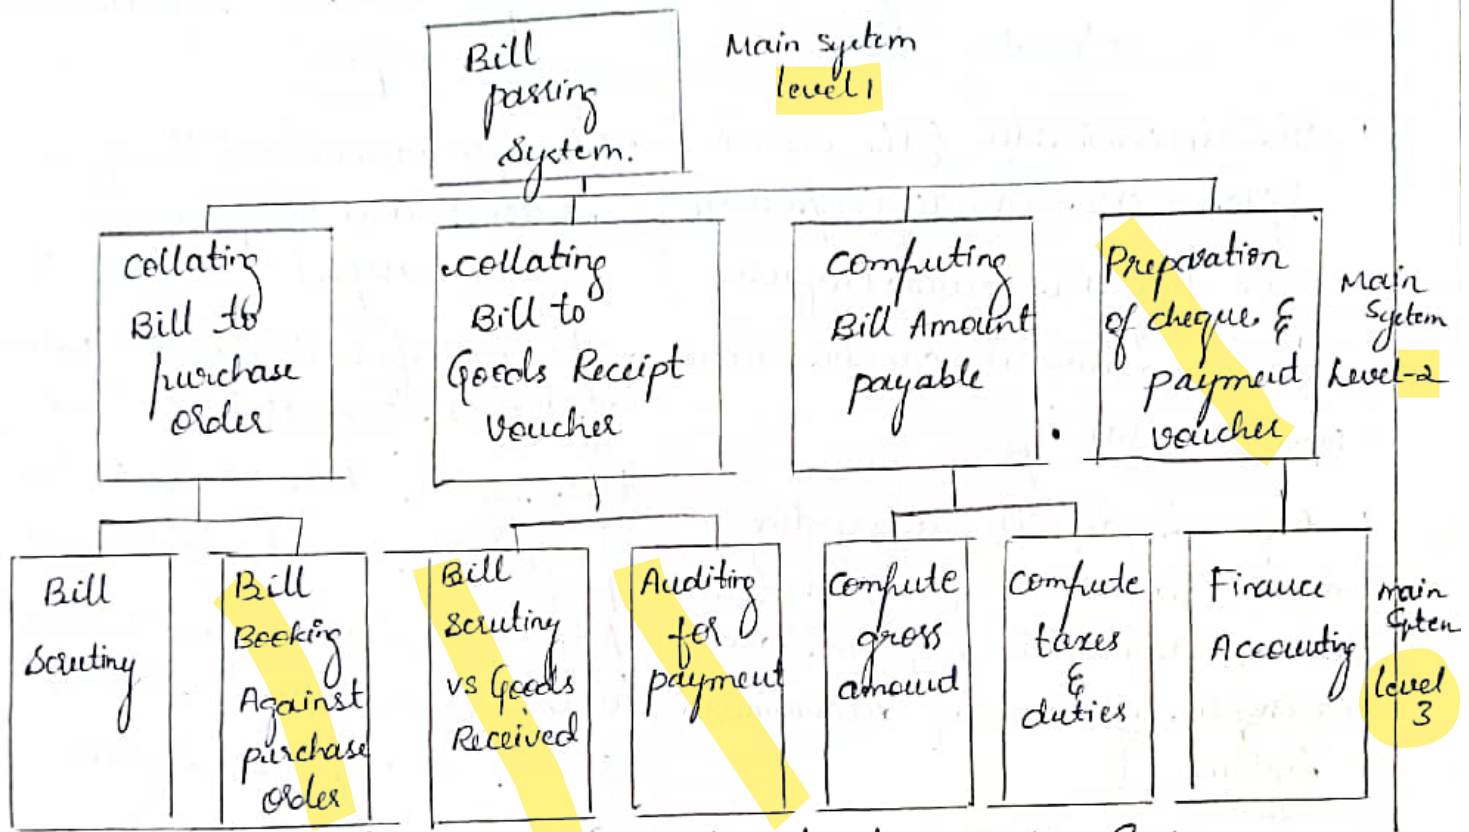 Bill
passing
System.
Main System
level 1
Collating
Bill to
purchase
order
collating
Bill to
Goods Receipt
Voucher
Computing
Bill Amount
payable
Preparation
of cheque &
payment
voucher
Main
System
Level-2
Bill
Scrutiny
Bill
Booking
Against
purchase
order
Bill
Scrutiny
vs Goods
Received
Auditing
for
payment
Compute
gross
amount
Compute
taxes
&
duties
Finance
Accounting
main
System
level
3